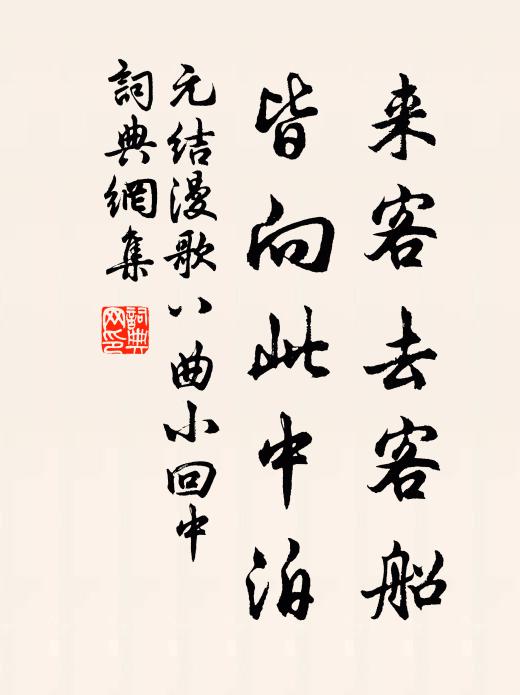 来客去客船
皆向此中泊
元结漫歌八曲小回中
詞典網集
詞典网印